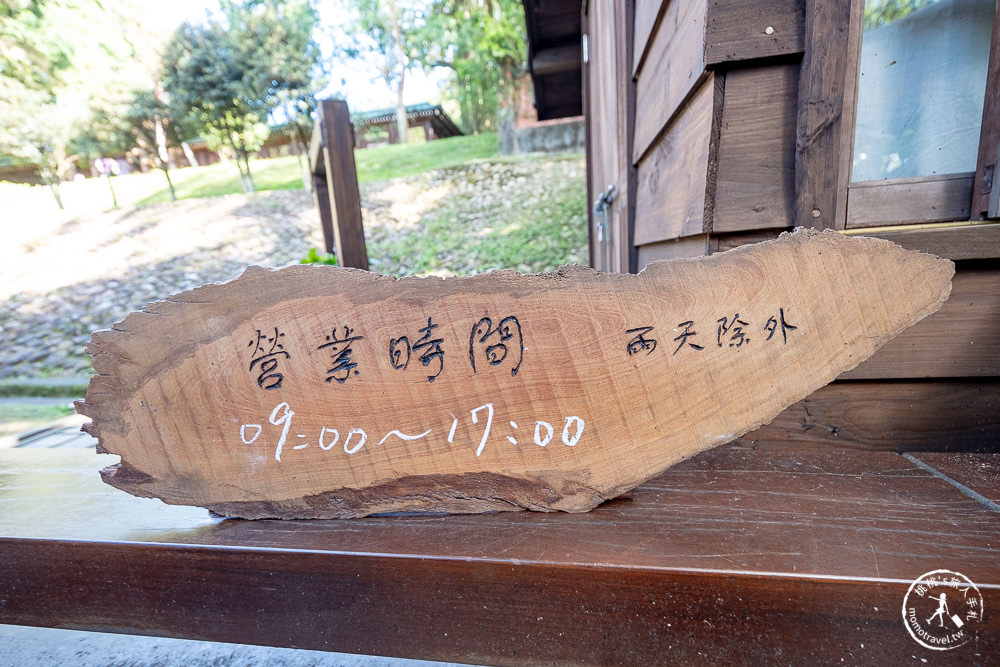 營業時間 雨天除外
09:00~17:00
桃桃's旅人手札
momotravel.tw